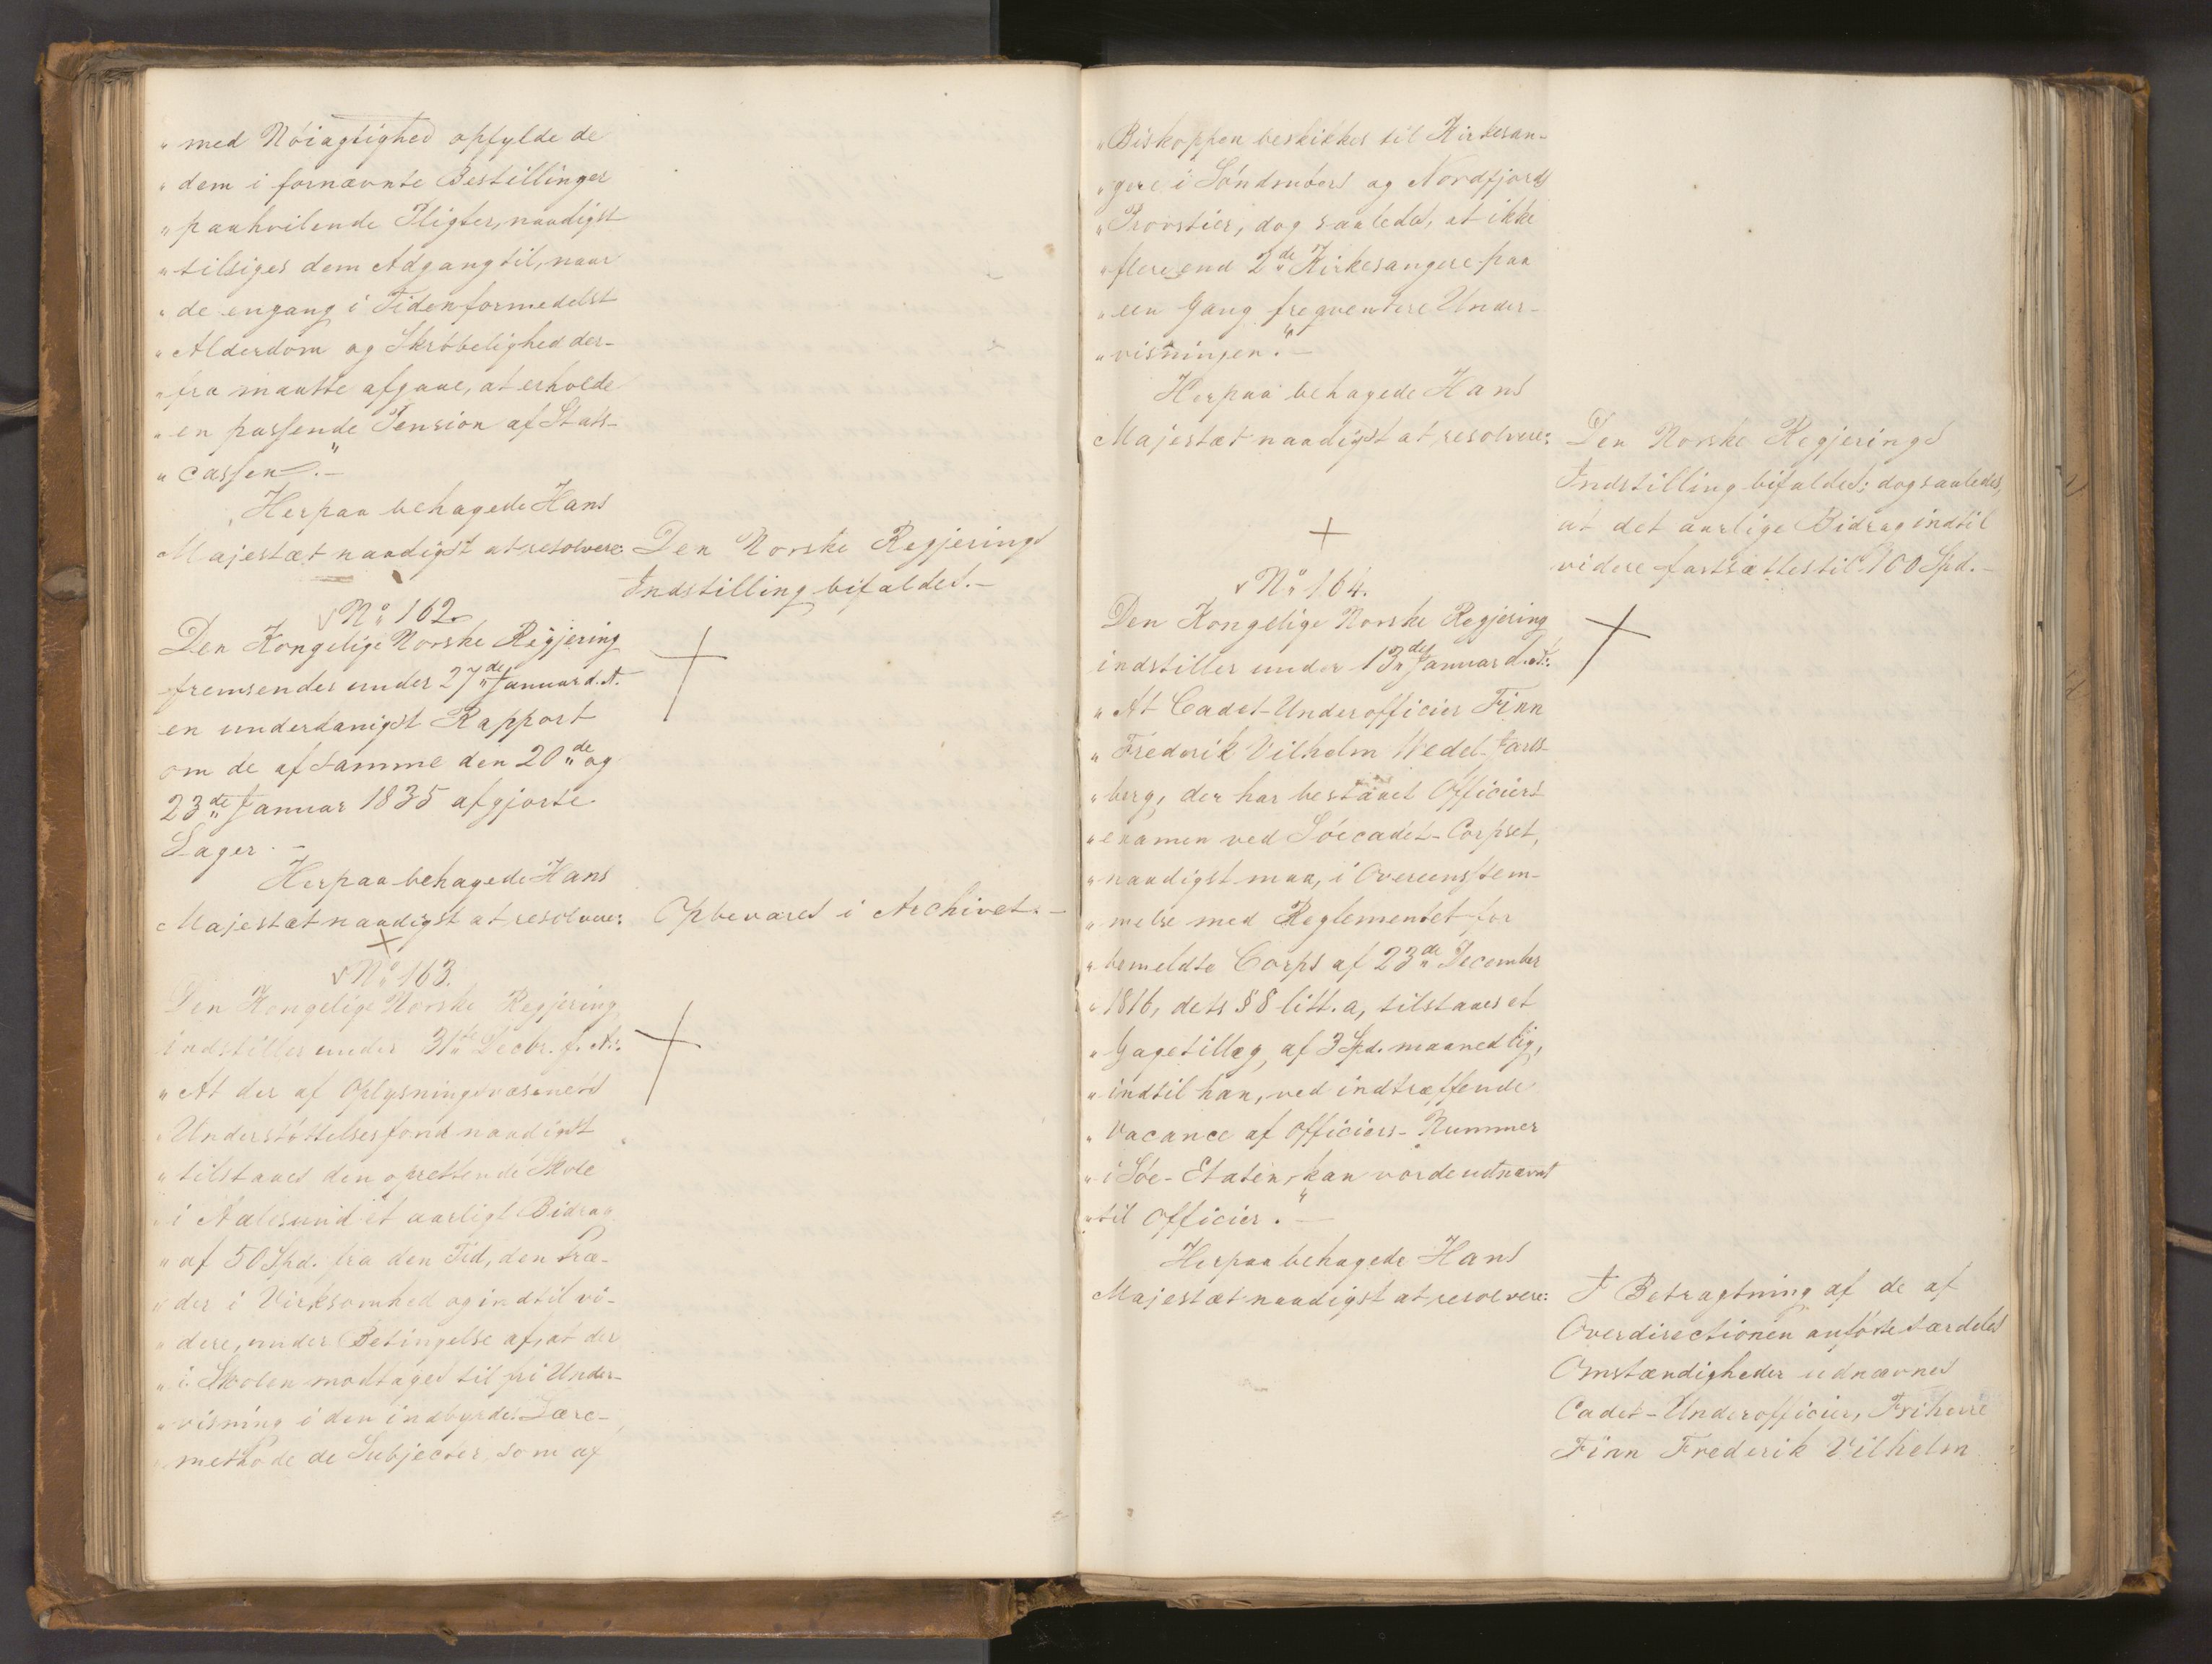 „ med Nöiagtighed opfylde de
„ dem i fornævnte Bestillinger
„ paahvilende Pligter, naadigst
„ tilsiges dem Adgang til, naar
„ de engang i Tiden formedelst
„ Alderdom og Skröbelighed der-
„ fra maatte afgaae, at erholde
„ en passende Pension af Stats-
„ cassen.“ —
Herpaa behagede Hans
Majestæt naadigst at resolvere:
Den Norske Regjerings
Indstilling bifaldes. —
No 162.
Den Kongelige Norske Regjering
fremsender under 27de Januar d. A.
en underdanigst Rapport
om de af Samme den 20de og
23de Januar 1835 afgjorte
Sager. —
Herpaa behagede Hans
Majestæt naadigst at resolvere:
Opbevares i Archivet. —
No 163.
Den Kongelige Norske Regjering
indstiller under 31te Decbr. f. A.:
„ At der af Oplysningsvæsenets
„ Understöttelsesfond naadigst
„ tilstaaes den oprettende Skole
„ i Aalesund et aarligt Bidrag
„ af 50 Spd. fra den Tid, den træ-
„ der i Virksomhed og indtil vi-
„ dere, under Betingelse af, at der
„ i Skolen modtages til fri Under-
„ visning i den indbyrdes Lære-
„ methode de Subjecter, som af
„ Biskoppen beskikkes til Kirkesan-
„ gere i Söndmörs og Nordfjords
„ Provstier, dog saaledes, at ikke
„ flere end 2de Kirkesangere paa
„ een Gang freqventere Under-
„ visningen.“ —
Herpaa behagede Hans
Majestæt naadigst at resolvere:
Den Norske Regjerings
Indstilling bifaldes; dog saaledes,
at det aarlige Bidrag indtil
videre fastsættes til 100 Spd. —
No 164.
Den Kongelige Norske Regjering
indstiller under 13de Januar d. A.:
„ At Cadet-Underofficier Finn
„ Frederik Vilhelm Wedel-Jarls-
„ berg, der har bestaaet Officiers
„ examen ved Söecadet-Corpset,
„ naadigst maa, i Overeensstem-
„ melse med Reglementet for
„ bemeldte Corps af 23de December
„ 1816, dets § 8 litt. a, tilstaaes et
„ Gagetillæg af 3 Spd. maanedlig,
„ indtil han, ved indtræffende
„ Vacance af Officiers-Nummer
„ i Söe-Etaten, kan vorde udnævnt
„ til Officier.“ —
Herpaa behagede Hans
Majestæt naadigst at resolvere:
I Betragtning af de af
Overdirectionen anförte særdeles
Omstændigheder udnævnes
Cadet-Underofficier, Friherre
Finn Frederik Vilhelm